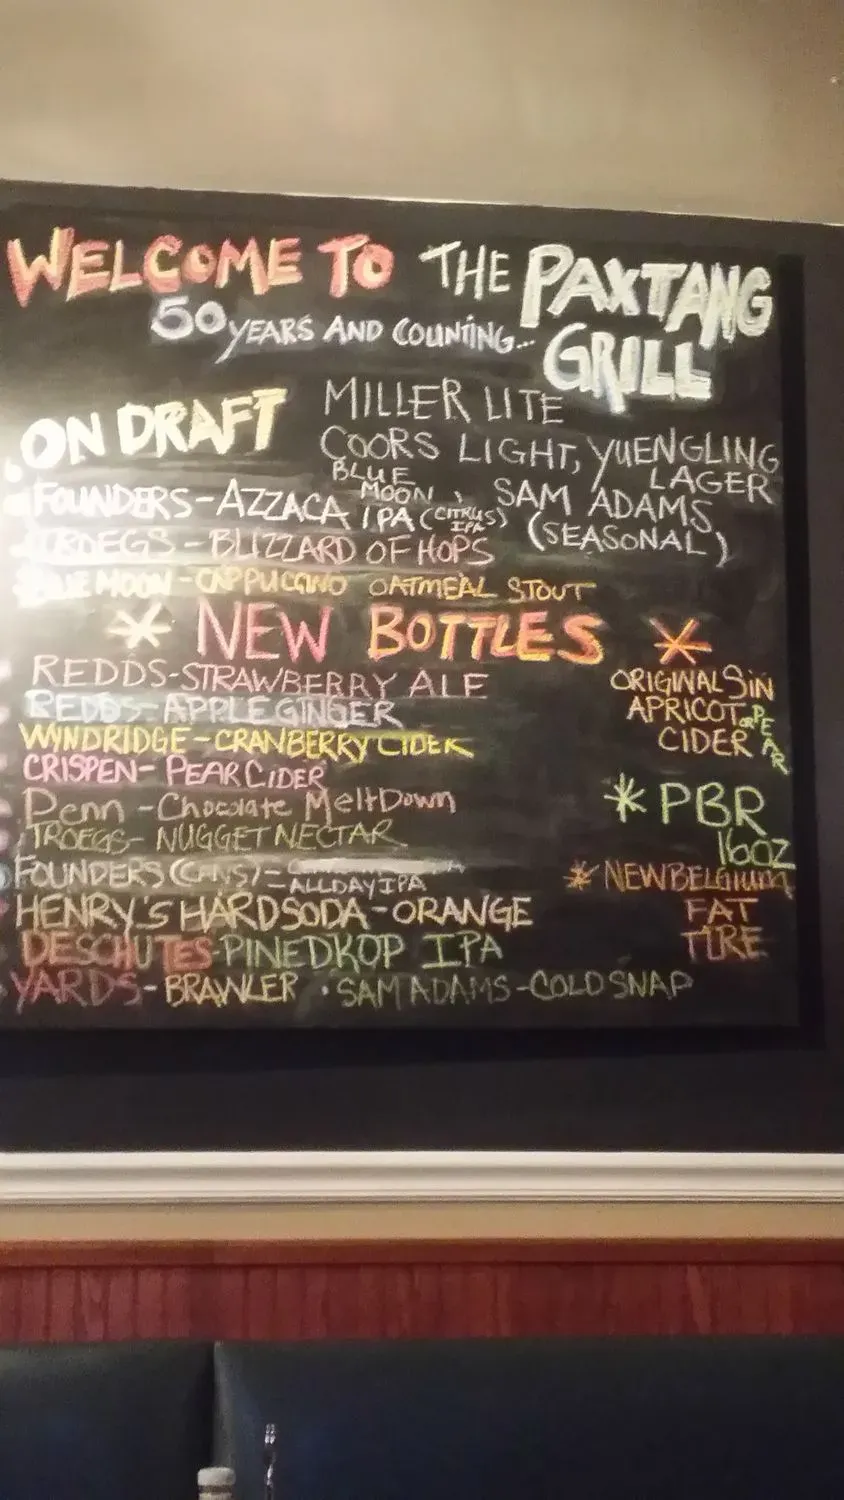 WELCOME TO THE PAXTANG
GRILL
50 YEARS AND COUNTING...
ON DRAFT
MILLER LITE
COORS LIGHT, YUENGLING
LAGER
BLUE
MOON, SAM ADAMS
(SEASONAL)
FOUNDERS - AZZACA IPA (CITRUS IPA)
TROEGS - BLIZZARD OF HOPS
BLUE MOON - CAPPUCCINO OATMEAL STOUT
* NEW BOTTLES *
REDDS - STRAWBERRY ALE
REDDS - APPLE GINGER
WYNDRIDGE - CRANBERRY CIDER
CRISPEN - PEAR CIDER
Penn - Chocolate MeltDown
TROEGS - NUGGET NECTAR
FOUNDERS (CANS) - ALL DAY IPA
HENRY'S HARD SODA - ORANGE
DESCHUTES - PINEDROP IPA
YARDS - BRAWLER • SAM ADAMS - COLD SNAP
ORIGINAL SiN
APRICOT or PEAR
CIDER
* PBR
16OZ
* NEW BELGIUM
FAT
TIRE